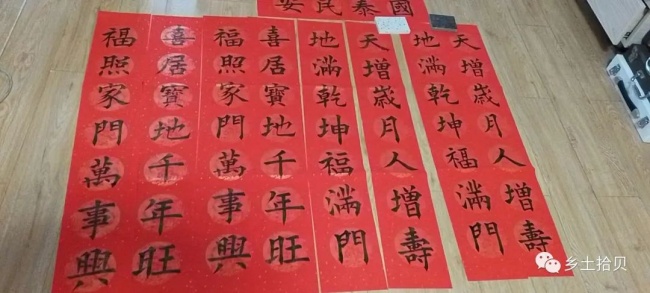 國泰民安
天增歲月人增壽
地滿乾坤福滿門
天增歲月人增壽
地滿乾坤福滿門
喜居寶地千年旺
福照家門萬事興
喜居寶地千年旺
福照家門萬事興
乡土拾贝